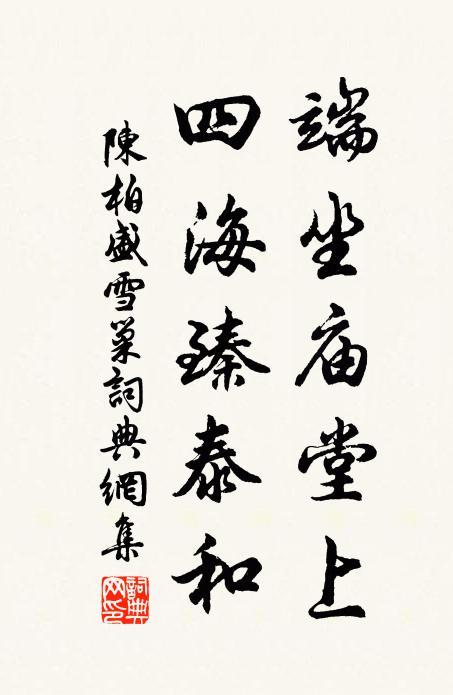 端坐庙堂上
四海臻泰和
陳柏盛雪巢詞典網集
詞典网印